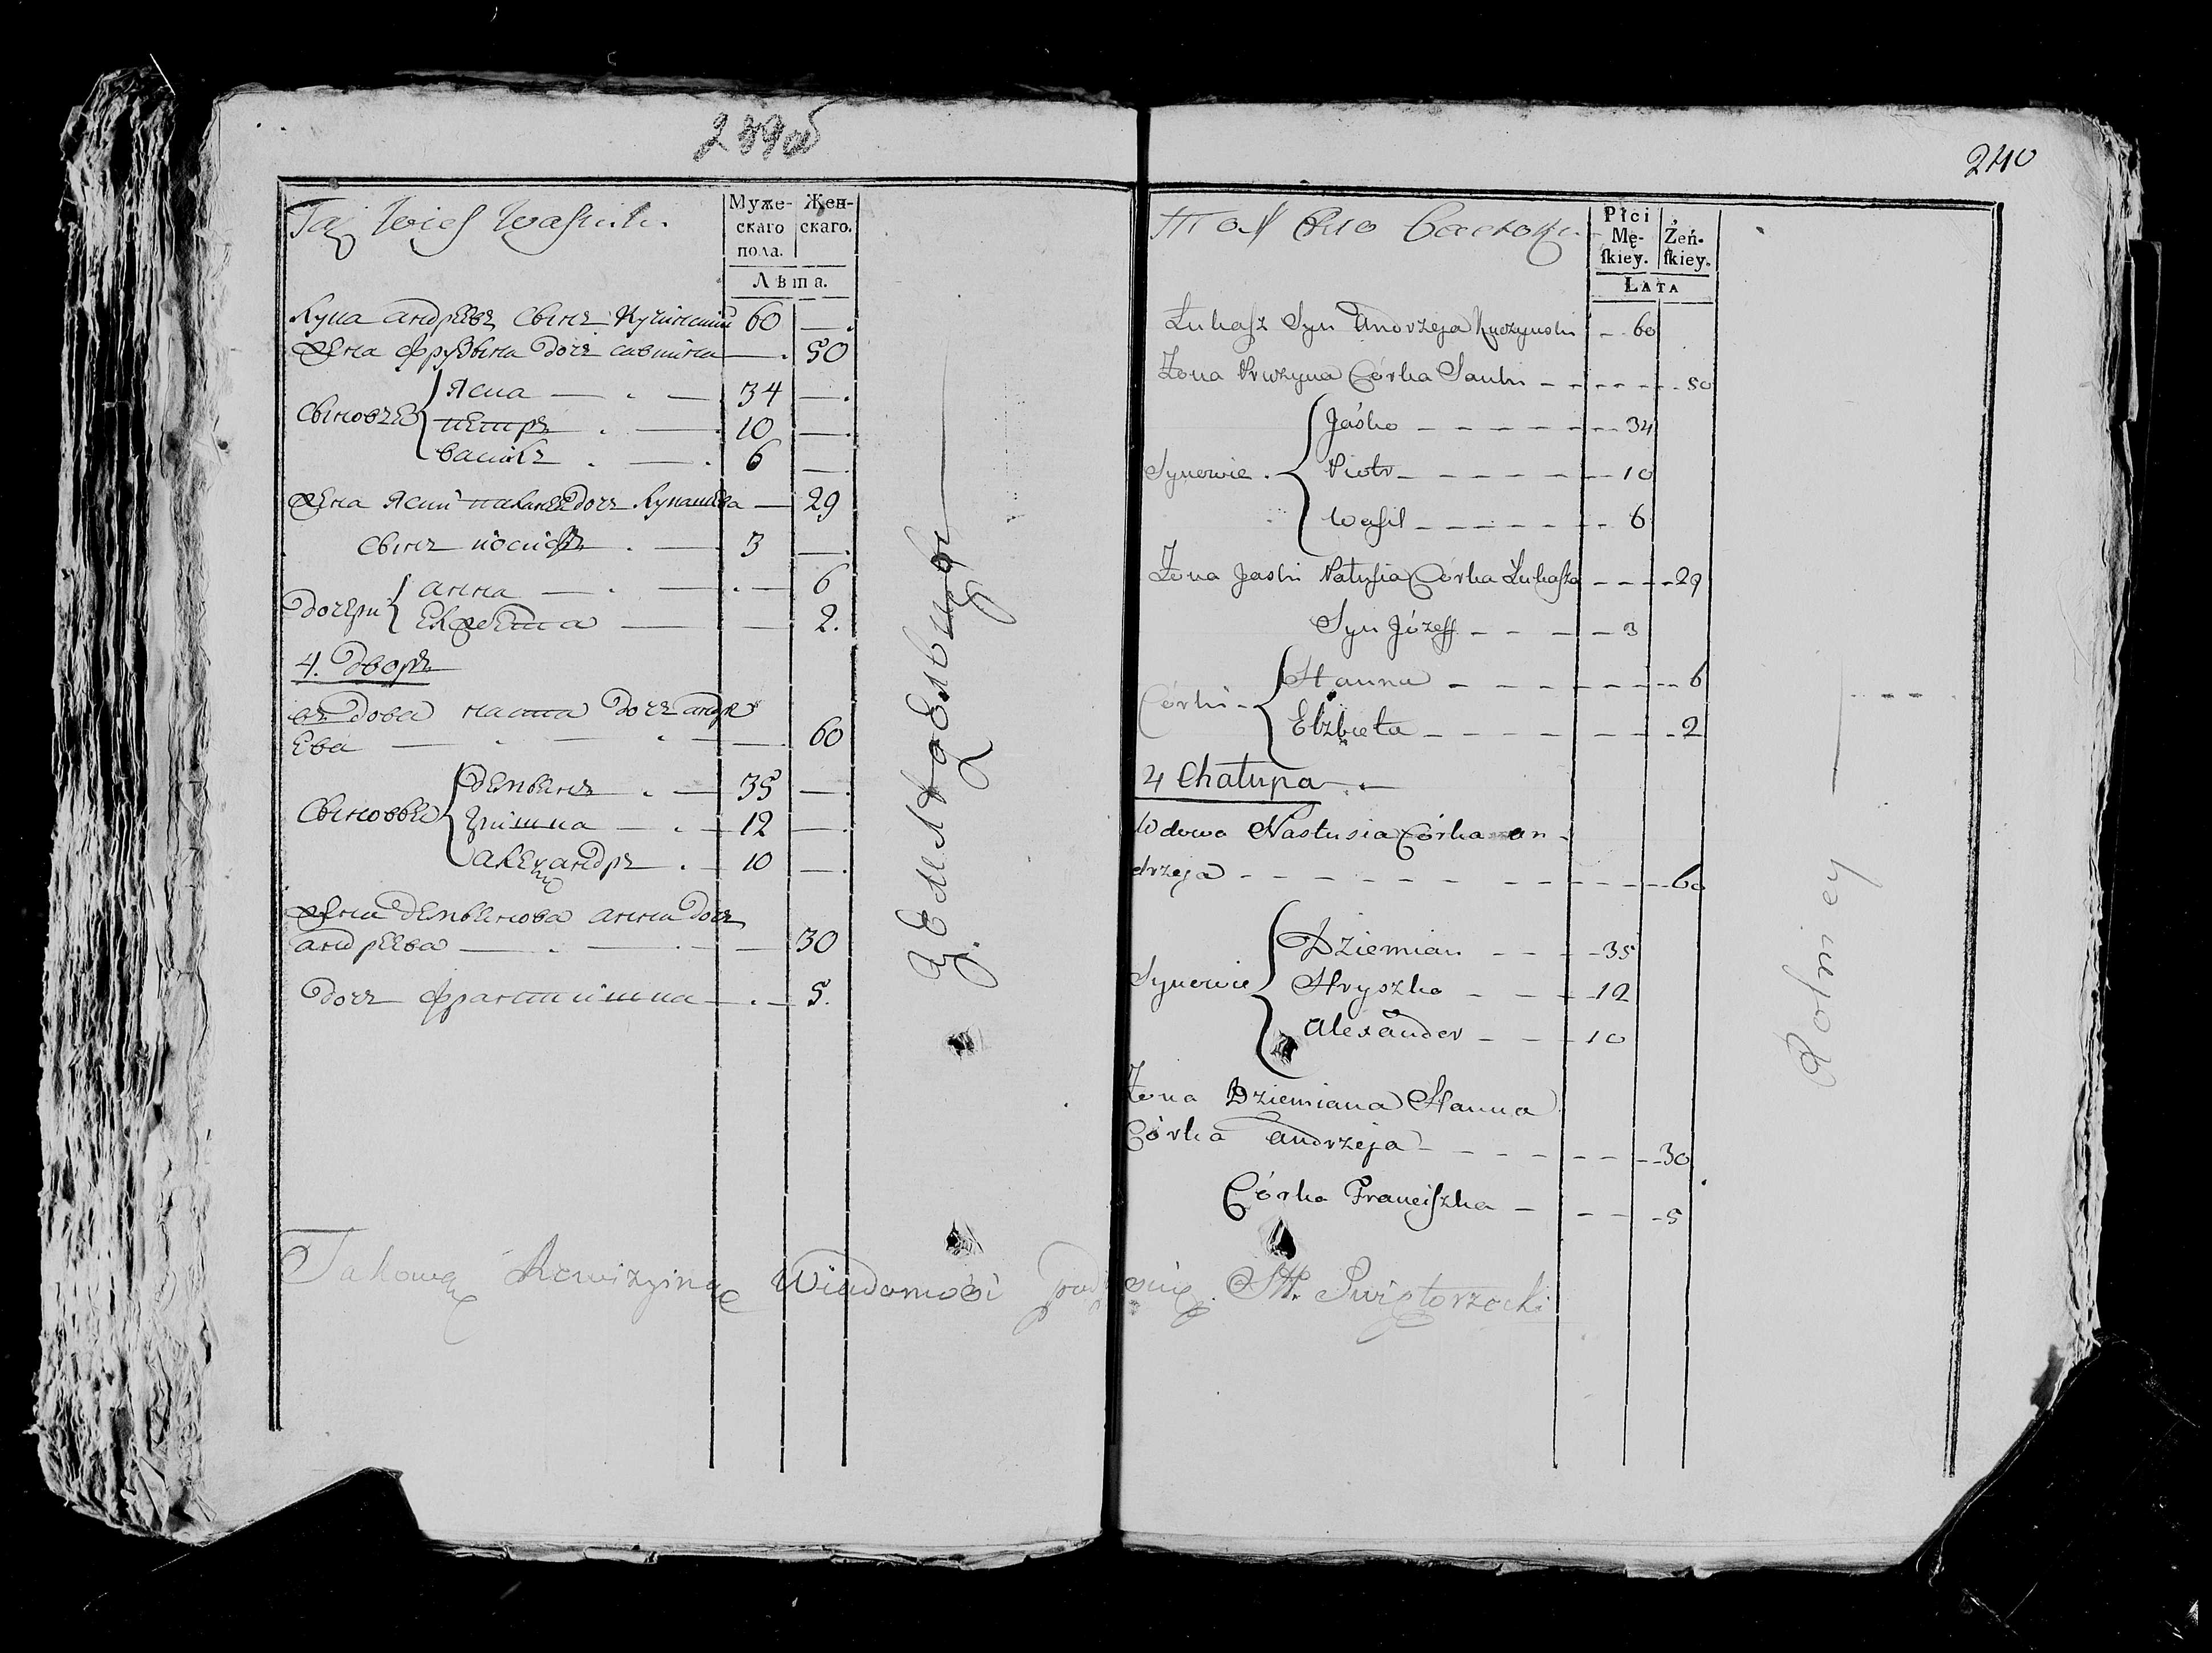 239об
Таż Wieś Waśki
Муже-
скаго
пола.
Жен-
скаго.
Лѣта.
Лука андреевъ Сынъ Кучинский 60 —
Жена фрузына дочь савкина — 50
Сыновьѣ
Яска — 34 —
петръ — 10 —
василь — 6 —
Жена Яски дочь Лукашева — 29
Сынъ иосифъ — 3 —
дочери
анна — 6
Елжбета — 2.
4. дворъ
вдова наста дочь андре
ева — 60
Сыновья
демьянъ — 35 —
Гришка — 12 —
александръ — 10 —
Жена демьянова анна дочь
андреева — 30
дочь францишка — 5.
Земледельцы
240
Płci
Mę-
ſkiey.
Żeń-
ſkiey.
LATA
Łukasz Syn Andrzeja Kuczynski — 60
Żona Pruzyna Córka Sawki — 50
Synowie
Jaśko — 34
Piotr — 10
Wasil — 6
Żona Jaśki Natusia Córka Łukasza — 29
Syn Józeff — 3
Córki
Hanna — 6
Elzbieta — 2
4 Chałupa
Wdowa Nastusia Córka an
drzeja — 60
Synowie
Dziemian — 35
Hryszko — 12
Alexander — 10
Żona Dziemiana Hanna
Córka Andrzeja — 30
Córka Franciszka — 5
Rolniey
Takową Rewizyiną Wiadomość podpisuię. Świętorzecki